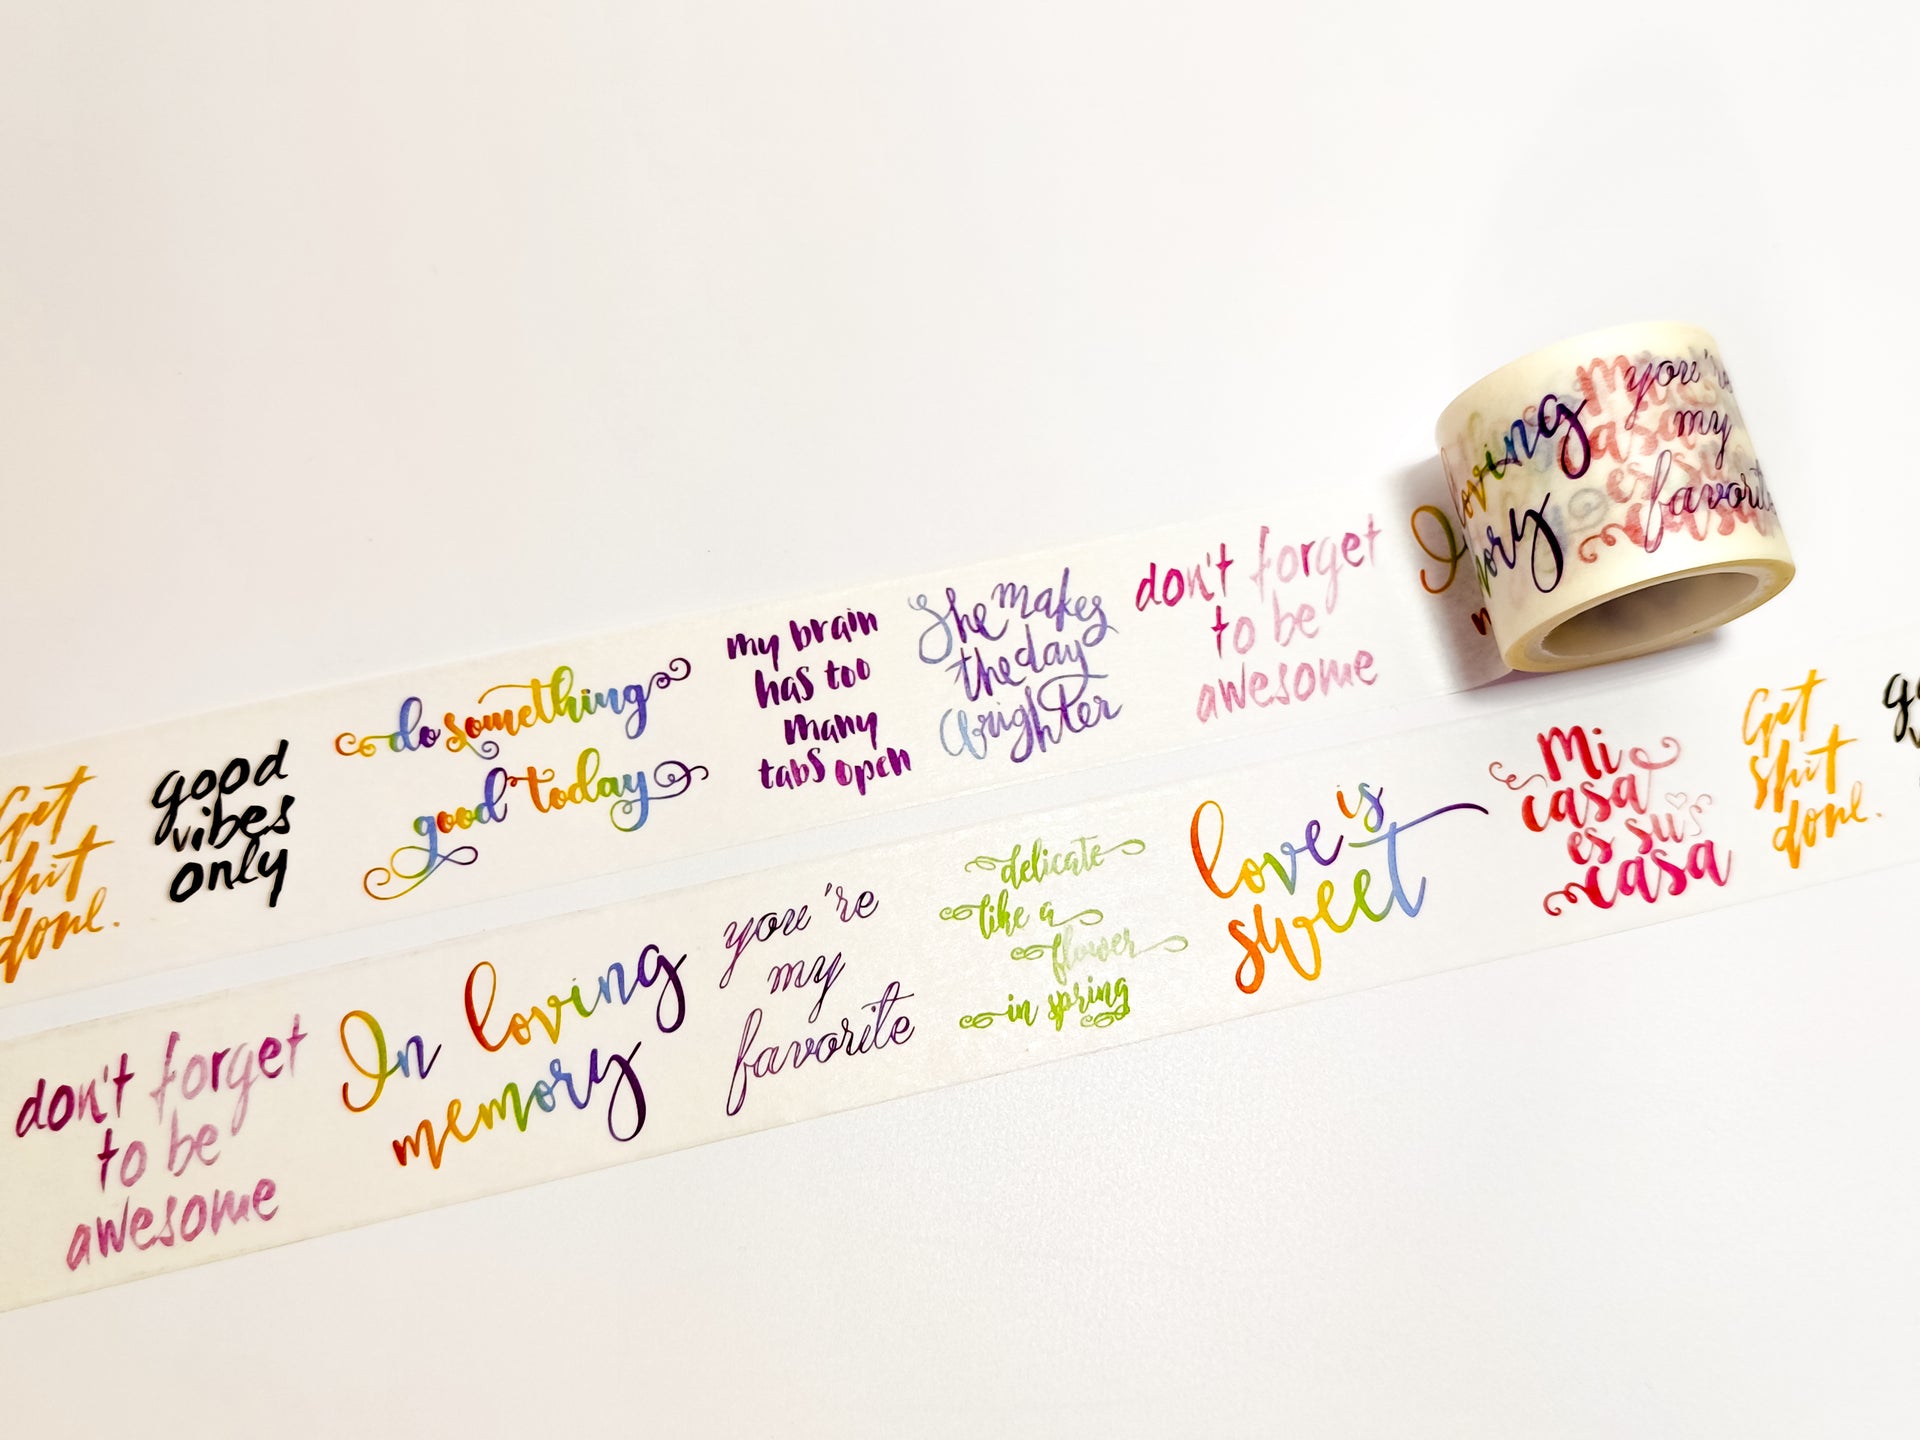 Get
shit
done.
good
vibes
only
do something
good today
my brain
has too
many
tabs open
She makes
the day
brighter
don't forget
to be
awesome
In loving
memory
you're
my
favorite
Mi
casa
es
casa
don't forget
to be
awesome
In loving
memory
you're
my
favorite
delicate
like a
flower
in spring
love is
sweet
Mi
casa
es sus
casa
Get
shit
done.